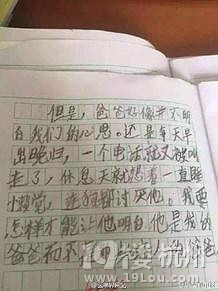 但是，爸爸好像并不明
白我们的心思。还是每天早
出晚归，一个电话就又被叫
走了，休息天就想着一直睡
觉，连狗都讨厌他。我要
怎样才能让他明白他是我的
爸爸而不是 的爸爸
www.19lou.com